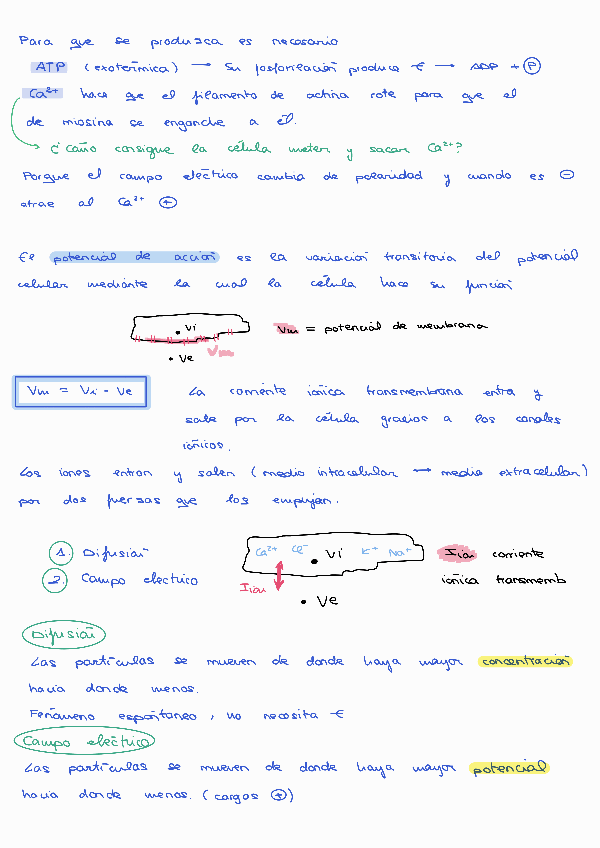 Para que se produzca es necesario
ATP (exotérmica) → su fosforilación produce E → ADP + P
Ca²⁺ hace que el filamento de actina rote para que el
de miosina se enganche a él.
¿Cómo consigue la célula meter y sacar Ca²⁺?
Porque el campo eléctrico cambia de polaridad y cuando es ⊖
atrae al Ca²⁺ ⊕
El potencial de acción es la variación transitoria del potencial
celular mediante la cual la célula hace su función
Vi
Vm = potencial de membrana
Vm
Ve
Vm = Vi - Ve
La corriente iónica transmembrana entra y
sale por la célula gracias a los canales
iónicos.
Los iones entran y salen (medio intracelular ↔ medio extracelular)
por dos fuerzas que los empujan.
1. Difusión
2. Campo eléctrico
Ca²⁺ Cl⁻ Vi K⁺ Na⁺
Iion
Ve
Iion corriente
iónica transmemb
Difusión
Las partículas se mueven de donde haya mayor concentración
hacia donde menos.
Fenómeno espontáneo, no necesita E
Campo eléctrico
Las partículas se mueven de donde haya mayor potencial
hacia donde menos. (cargas ⊕)